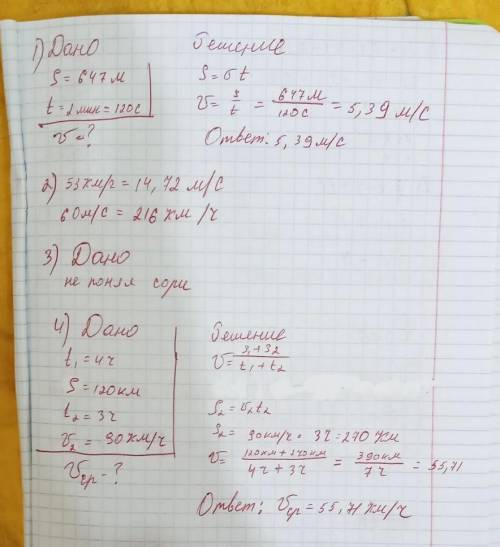 1) Дано
Решение
S = 647 м
t = 2 мин = 120 с
v = ?
S = v t
v = S/t = 647 м/120 с = 5,39 м/с
Ответ: 5,39 м/с
2) 53 км/ч = 14,72 м/с
60 м/с = 216 км/ч
3) Дано
не понял сори
4) Дано
Решение
t₁ = 4 ч
S = 120 км
t₂ = 3 ч
v₂ = 90 км/ч
vср - ?
v = S₁ + S₂/t₁ + t₂
S₂ = v₂t₂
S₂ = 90 км/ч · 3 ч = 270 км
v = 120 км + 270 км/4 ч + 3 ч = 390 км/7 ч = 55,71
Ответ: vср = 55,71 км/ч